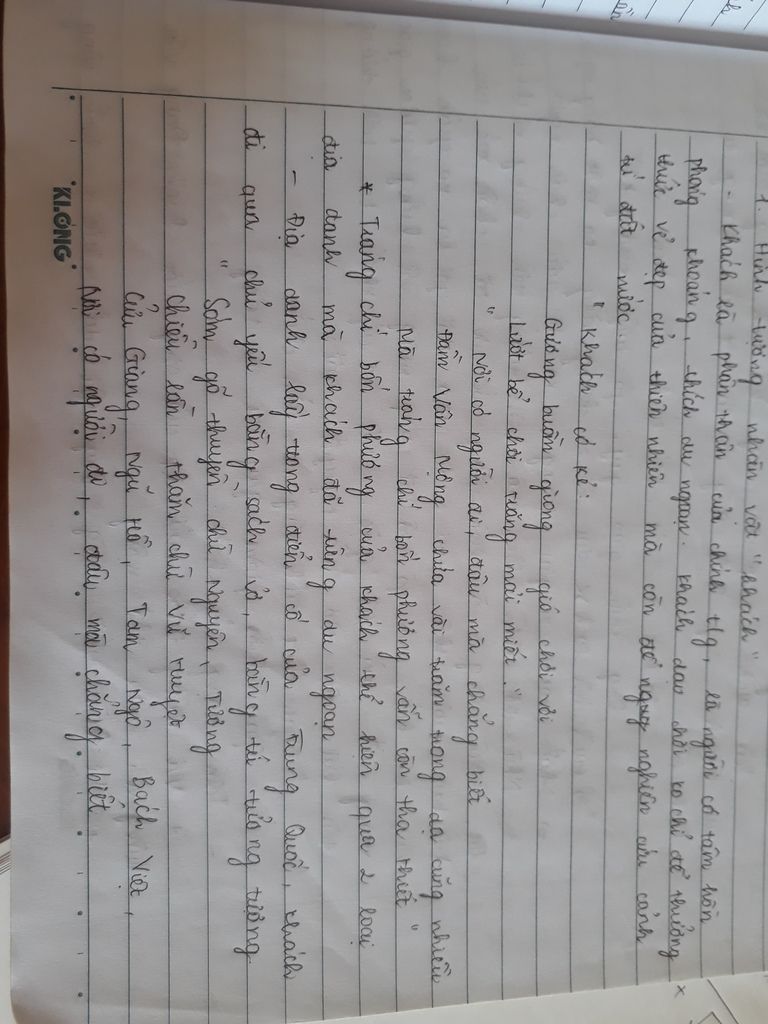 1. Hình tượng nhân vật "khách"
- Khách là phân thân của chính t/g, là người có tâm hồn
phóng khoáng, thích du ngoạn. Khách dạo chơi ko chỉ để thưởng
thức vẻ đẹp của thiên nhiên mà còn để nghiên cứu cảnh
trí đất nước.
"Khách có kẻ:
Giương buồm giong gió chơi vơi
Lướt bể chơi trăng mải miết."
"Nơi có người đi, đâu mà chẳng biết
Đầm Vân Mộng chứa vài trăm trong dạ cũng nhiều
Mà tráng chí bốn phương vẫn còn tha thiết"
* Tráng chí bốn phương của khách thể hiện qua 2 loại
địa danh mà khách đã từng du ngoạn
- Địa danh lấy trong điển cố của Trung Quốc, khách
đi qua chủ yếu bằng sách vở, bằng trí tưởng tượng.
"Sớm gõ thuyền chừ Nguyên, Tương
Chiều lần thăm chừ Vũ Huyệt
Cửu Giang, Ngũ Hồ, Tam Ngô, Bách Việt,
Nơi có người đi, đâu mà chẳng biết
KLONG